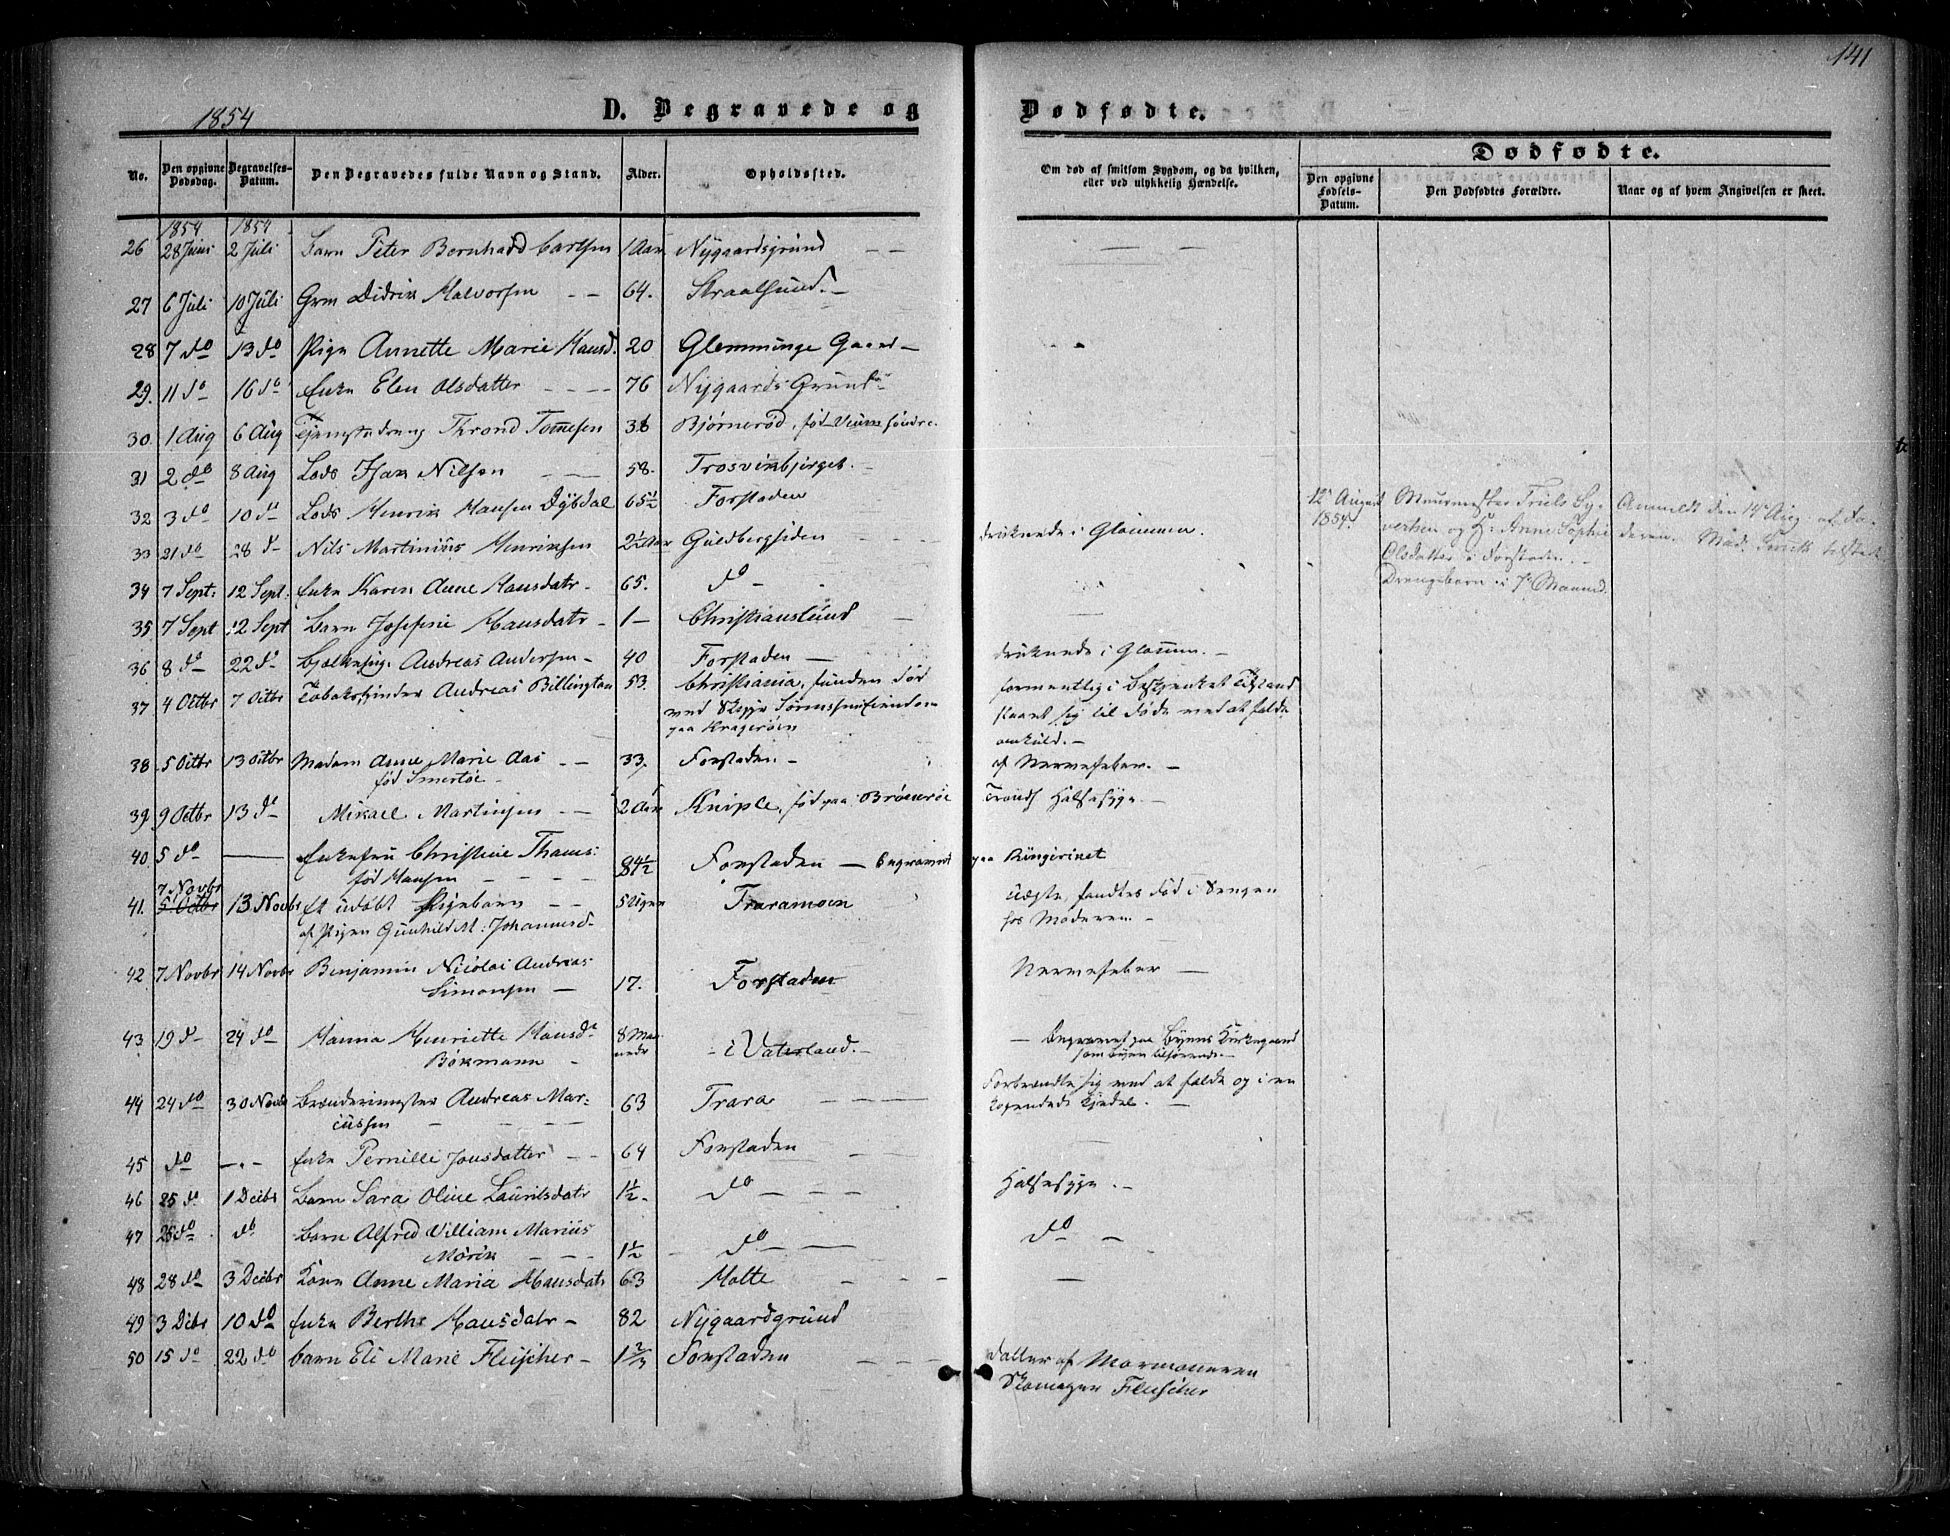 141
1854
D. Begravede og Dødfødte.
No.
Den opgivne Dødsdag.
Begravelses-Datum.
Den Begravedes fulde Navn og Stand.
Alder.
Opholdssted.
Om død af smitsom Sygdom, og da hvilken, eller ved ulykkelig Hændelse.
Dødfødte.
Den opgivne Fødsels-Datum.
Den Dødfødtes Forældre.
Naar og af hvem Angivelsen er skeet.
1854 1854
26 28 Juni 2 Juli Barn Peter Bernhard Carlsen 1 Aar Nygaardsgrund
27 6 Juli 10 Juli Grm Didrik Halvorsen 64. Straalsund.
28 7 do 13 do Pige Annette Marie Hansd. 20 Glemminge Gaard
29. 11 do 16 do Enke Elen Olsdatter 76 Nygaards Grund
30. 1 Aug 6 Aug Tjenestedreng Thrond 36 Bjørnerød, fød Veum søndre.
31 2 do 8 Aug Lods Isak Nilsen 58. Trosvikbjerget.
32 3 do 10 do Lods Henrik Hansen Dybdal 65½ Forstaden
33 21 do 28 d Nils Martinius Henriksen 2½ Aar Guldbergsiden druknede i Glommen.
34 7 Sept: 12 Sept: Enke Karen Anne Hansdatr. 65. do
35. 7 Sept 12 Sept Barn Josefine Hansdatr 1 Christianslund
36 8 do 22 do Andreas Andersen 40 Forstaden druknede i Glommen.
37 4 Octbr 7 Octbr Tobaksspinder Andreas Billington 53. Christiania, funden død formentlig i beskjenket Tilstand
ved paa Kragerøen slaaet sig til døde ved at falde
omkuld.
38 5 Octbr 13 Octbr Madam Anne Marie Aas 33. Forstaden af Nervefeber.
fød
39 9 Octbr 13 do Mikael Martinsen 2 Aar Kniple, fød paa Halsesyge.
40 5 do Enkefru Christine Thams: 84½ Forstaden Begravet paa
fød Hansen
7 Novbr
41. 5 Octbr 13 Novbr Et udøbt Pigebarn 5 Uger Traramoen fandtes død i Sengen
af Pigen Gunhild M: Johannesd. hos Moderen.
42 7 Novbr 14 Novbr Benjamin Nicolai Andreas
Simonsen 17. Forstaden Nervefeber
43 19 d 24 do Hanna Henriette Hansdr 8 Maaneder i Vaterland. Begravet paa Byens Kirkegaard
Bøkmann som Byen tilhørende.
44 24 do 30 Novbr Brænderimester Andreas Mar- 63 Trara Forbrændte sig ved at falde og i en
cussen kogendes Kjedel.
45 do Enke Pernille Jonsdatter 64 Forstaden
46 25 do 1 Decbr Barn Sara Oline Lauritsdatr 1½ do Halsesyge.
47 25 do do Barn Alfred William Marius
Mørik 1½ do do
48 28 do 3 Decbr Kone Anne Maria Hansdatr 63 Holte
49 3 Dcbr 10 do Enke Berthe Hansdatr 82 Nygaardgrund
50 15 do 22 do barn Eli Marie Fleischer 1⅔ Forstaden Datter af Mormoneren
Skomager Fleischer
12te August Muurmester Truls By- Anmeldt den 14 Aug. af Fa-
1854 verksen og H: Anne Sophie deren. Mad.
Olsdatter i Forstaden.
Drengebarn i 7de Maaned.